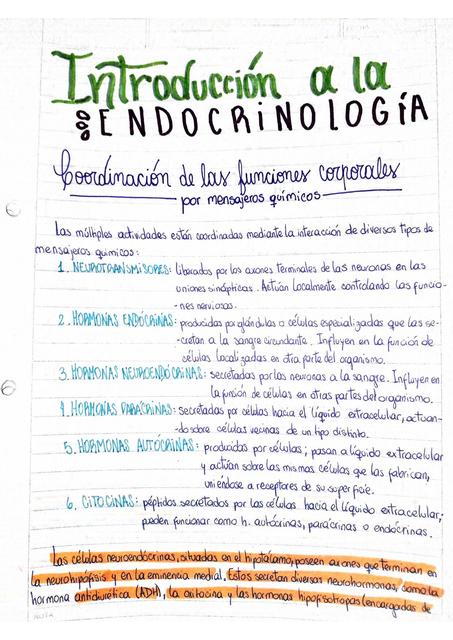 Introducción a la
ENDOCRINOLOGÍA
Coordinación de las funciones corporales
por mensajeros químicos
Las múltiples actividades están coordinadas mediante la interacción de diversos tipos de
mensajeros químicos:
1. NEUROTRANSMISORES: liberados por los axones terminales de las neuronas en las
uniones sinápticas. Actúan localmente controlando las funcio-
-nes nerviosas.
2. HORMONAS ENDÓCRINAS: producidas por glándulas o células especializadas que las se-
-cretan a la sangre circundante. Influyen en la función de
células localizadas en otra parte del organismo.
3. HORMONAS NEUROENDÓCRINAS: secretadas por las neuronas a la sangre. Influyen en
la función de células en otras partes del organismo.
4. HORMONAS PARACRINAS: secretadas por células hacia el líquido extracelular, actuan-
-do sobre células vecinas de un tipo distinto.
5. HORMONAS AUTÓCRINAS: producidas por células; pasan a líquido extracelular
y actúan sobre las mismas células que las fabrican,
uniendose a receptores de su superficie.
6. CITOCINAS: péptidos secretados por las células hacia el líquido extracelular;
pueden funcionar como h. autócrinas, parácrinas o endócrinas.
Las células neuroendócrinas, situadas en el hipotálamo, poseen axones que terminan en
la neurohipófisis y en la eminencia medial. Estos secretan diversas neurohormonas, como la
hormona antidiurética (ADH), la oxitocina y las hormonas hipofisotropas (encargadas de